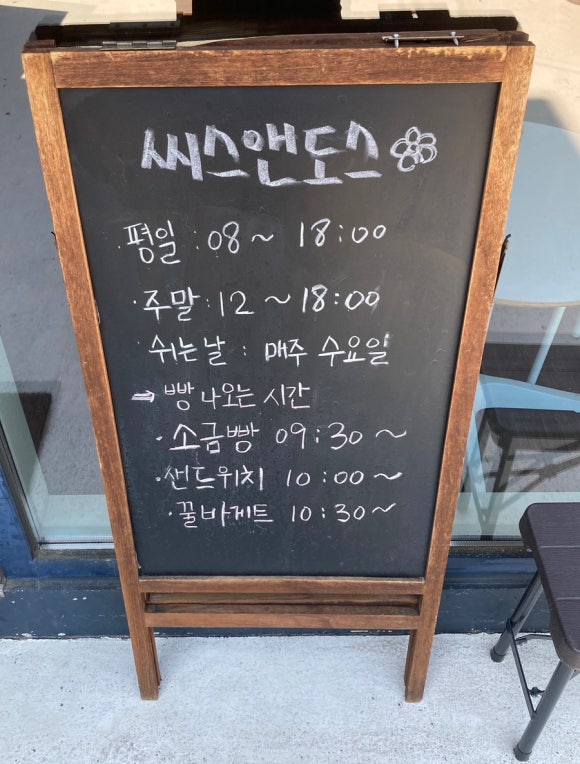 씨스앤도스
· 평일 : 08 ~ 18:00
· 주말 : 12 ~ 18:00
쉬는날 : 매주 수요일
⇒ 빵 나오는 시간
· 소금빵 09:30 ~
· 샌드위치 10:00 ~
· 꿀바게트 10:30 ~